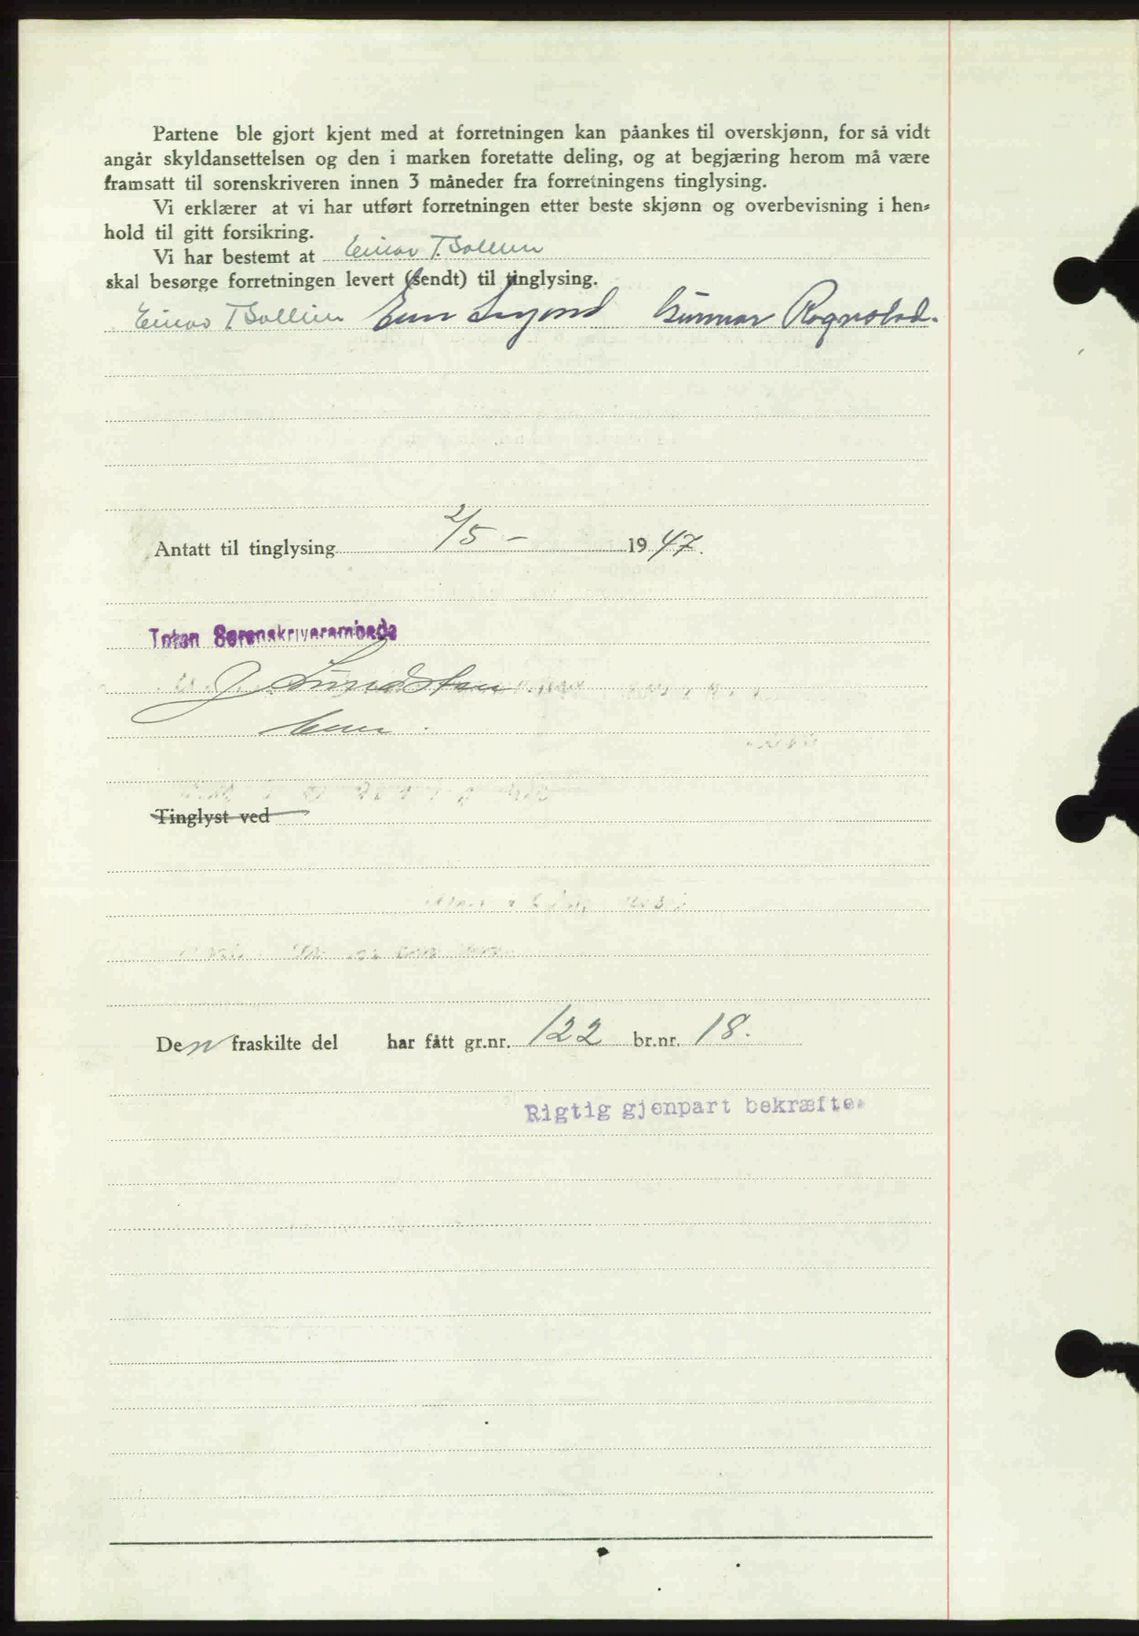 Partene ble gjort kjent med at forretningen kan påankes til overskjønn, for så vidt
angår skyldansettelsen og den i marken foretatte deling, og at begjæring herom må være
framsatt til sorenskriveren innen 3 måneder fra forretningens tinglysing.
Vi erklærer at vi har utført forretningen etter beste skjønn og overbevisning i hen-
hold til gitt forsikring.
Vi har bestemt at Einar T. Sollien
skal besørge forretningen levert (sendt) til tinglysing.
Einar T Sollien Gunnar Rognstad.
Antatt til tinglysing 2/5 - 1947.
Toten Sorenskriverembede
J Sundsten
Tinglyst ved
Den fraskilte del har fått gr.nr. 122 br.nr. 18.
Rigtig gjenpart bekræftes